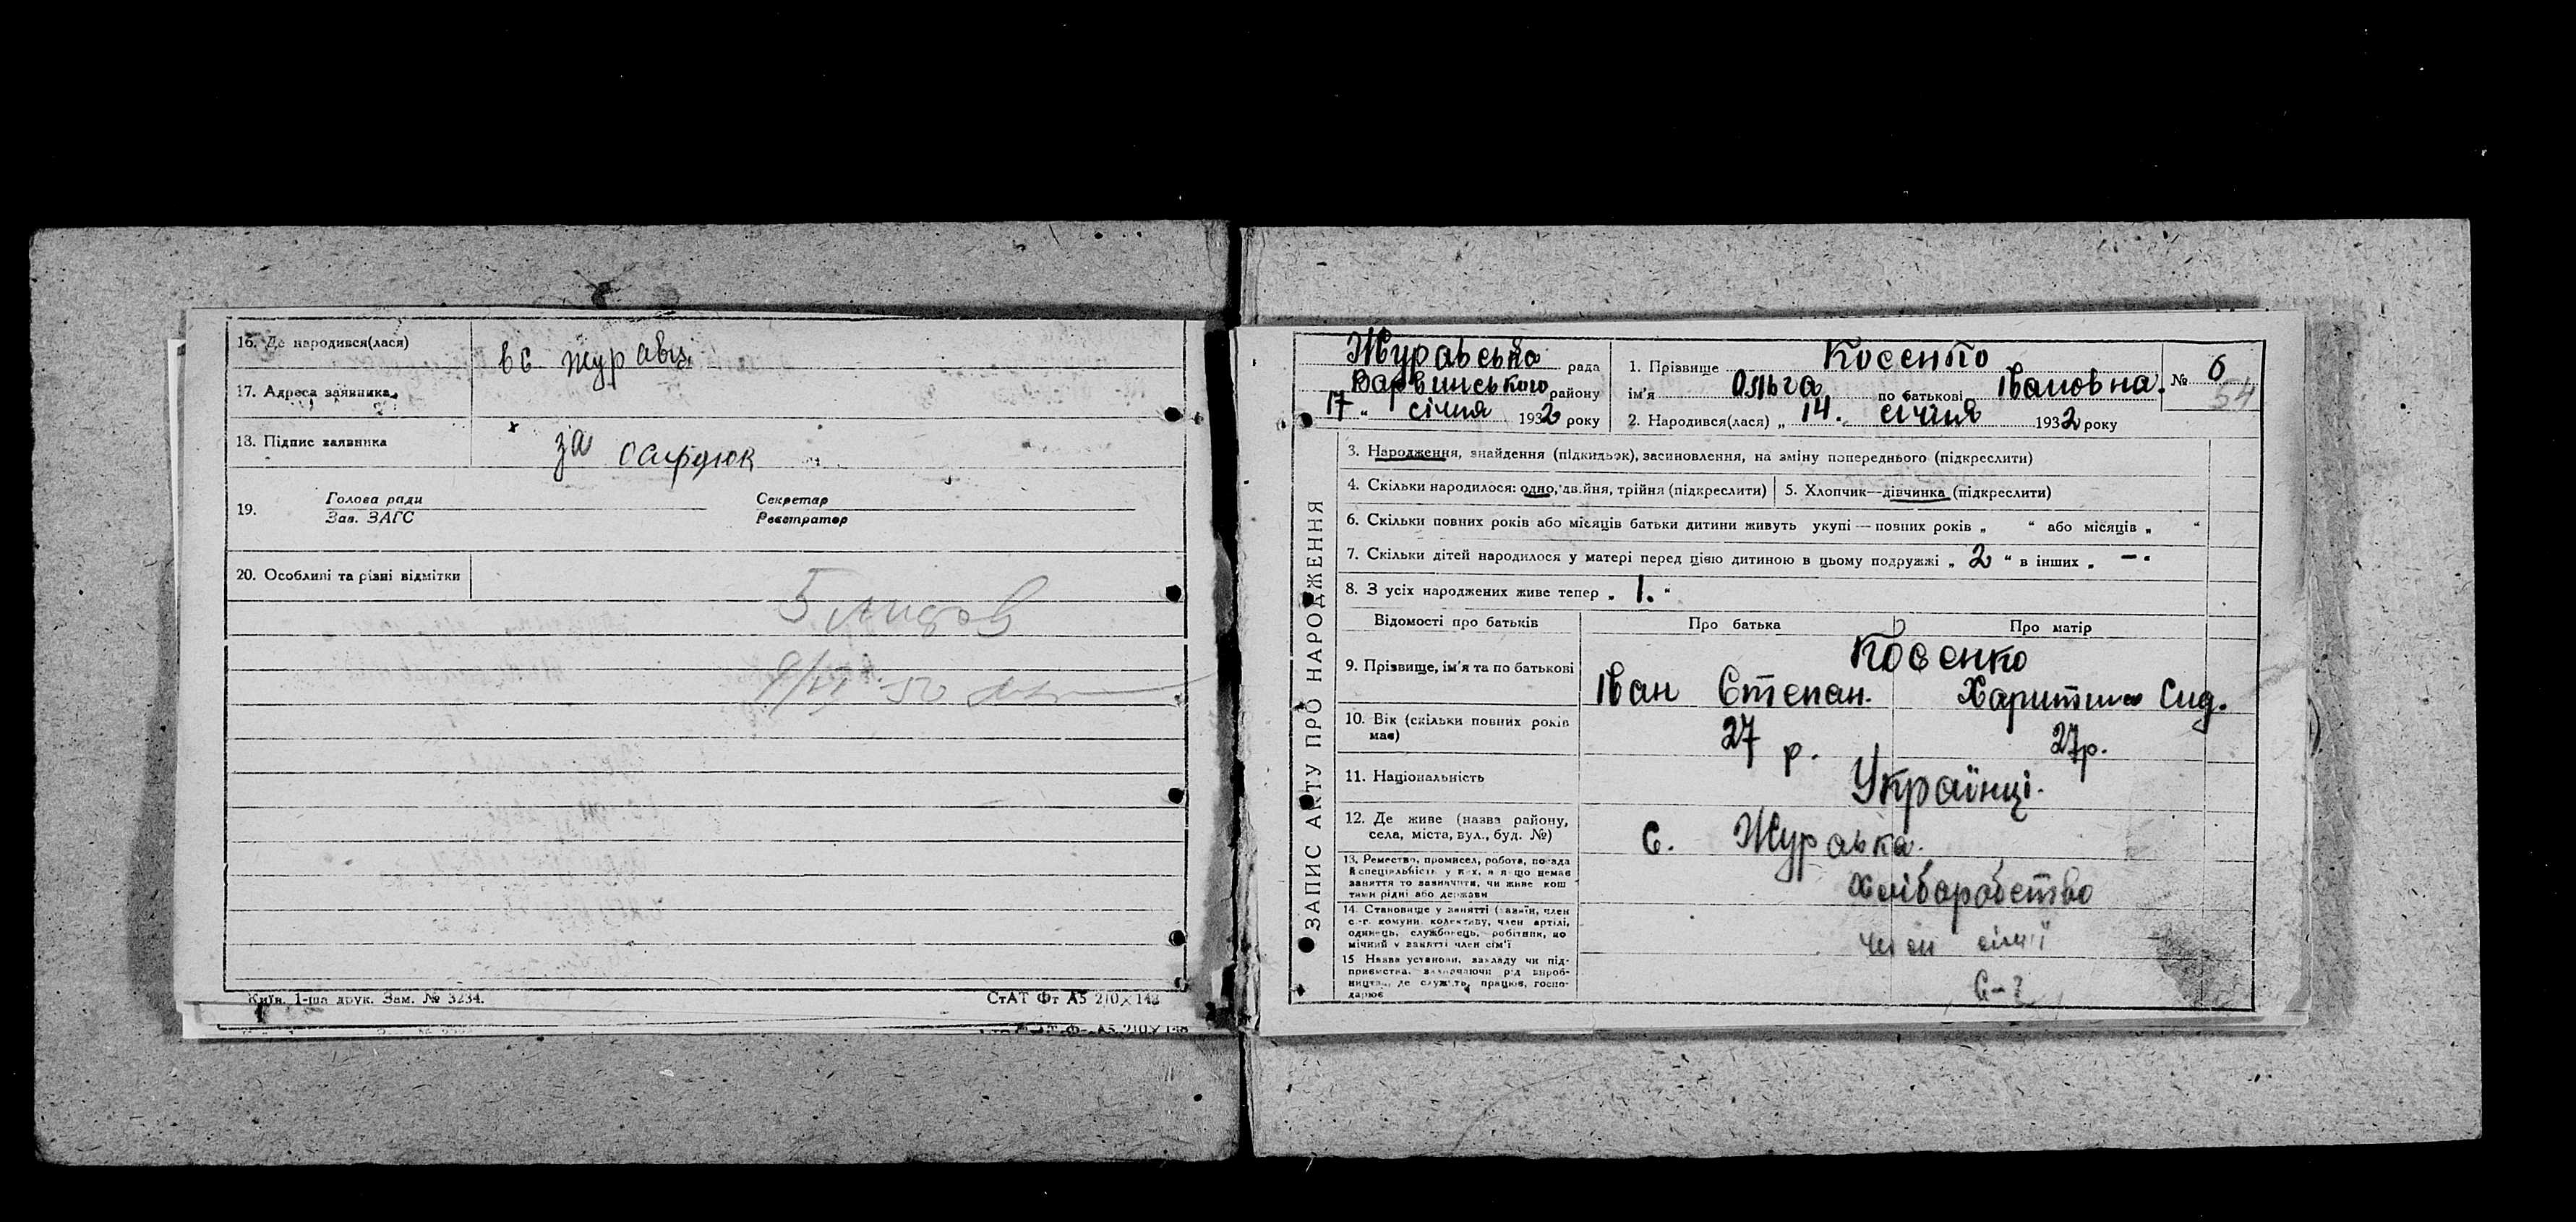 16. Де народився(лася) в с Журавці
17. Адреса заявника
18. Підпис заявника за
19. Голова ради Секретар
Зав. ЗАГС Реєстратор
20. Особливі та різні відмітки
5
Київ. 1-ша друк. Зам. № 3234. СтАТ Фт А5 210×148
ЗАПИС АКТУ ПРО НАРОДЖЕННЯ
Журавська рада
Варвинського району
17 „ січня 1932 року
1. Прізвище Косенко
ім'я Ольга по батькові Івановна.
2. Народився(лася) „ 14. січня 1932 року
№ 6
54
3. Народження, знайдення (підкидьок), засиновлення, на зміну попереднього (підкреслити)
4. Скільки народилося: одно, двійня, трійня (підкреслити) 5. Хлопчик—дівчинка (підкреслити)
6. Скільки повних років або місяців батьки дитини живуть укупі — повних років „ “ або місяців „ “
7. Скільки дітей народилося у матері перед цією дитиною в цьому подружжі „ 2 “ в інших „ — “
8. З усіх народжених живе тепер „ 1. “
Відомості про батьків Про батька Про матір
Косенко
9. Прізвище, ім'я та по батькові Іван Степан. Харитина Сид.
10. Вік (скільки повних років має) 27 р. 27 р.
11. Національність Українці.
12. Де живе (назва району,
села, міста, вул., буд. №) с. Журавка.
13. Ремество, промисел, робота, посада
й спеціальність у них, а якщо немає
заняття то зазначити, чи живе кош
тами рідні або держави
Хліборобство
14. Становище у занятті (хазяїн, член
с.-г. комуни, колективу, член артілі,
одинець, службовець, робітник, по
мічний у занятті член сім'ї
член сімї
15 Назва установи, закладу чи під-
приємства, визначаючи рід вироб-
ництва, де служить, працює, госпо-
дарює